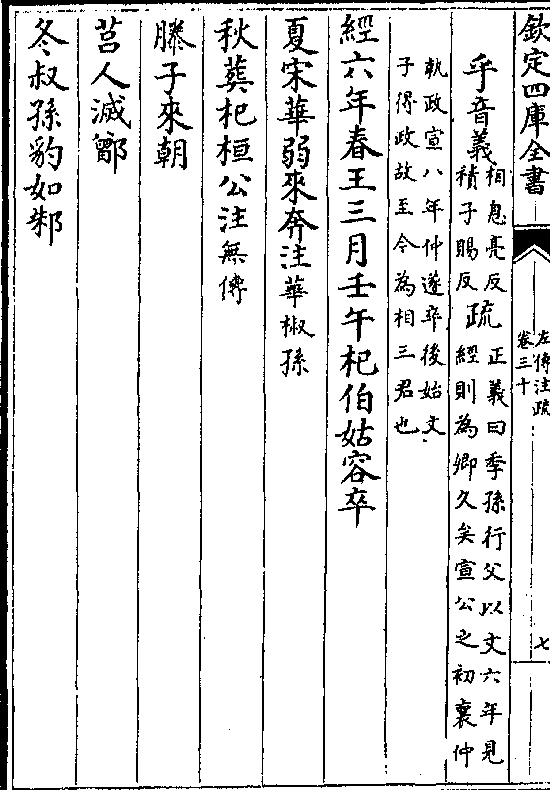 欽定四庫全書
左傳注疏
卷三十
七
乎音義相息亮反
積子賜反疏正義曰季孫行父以文六年見
經則為卿久矣宣公之初襄仲
執政宣八年仲遂卒後始文
子得政故至今為相三君也
經六年春王三月壬午杞伯姑容卒
夏宋華弱來奔注華椒孫
秋葬杞桓公注無傳
滕子來朝
莒人滅鄫
冬叔孫豹如邾